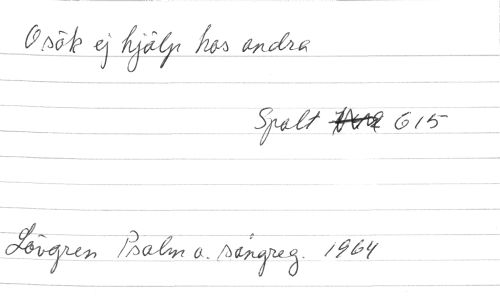 O sök ej hjälp hos andra
Spalt 615
Lövgren Psalm o. sångreg. 1964